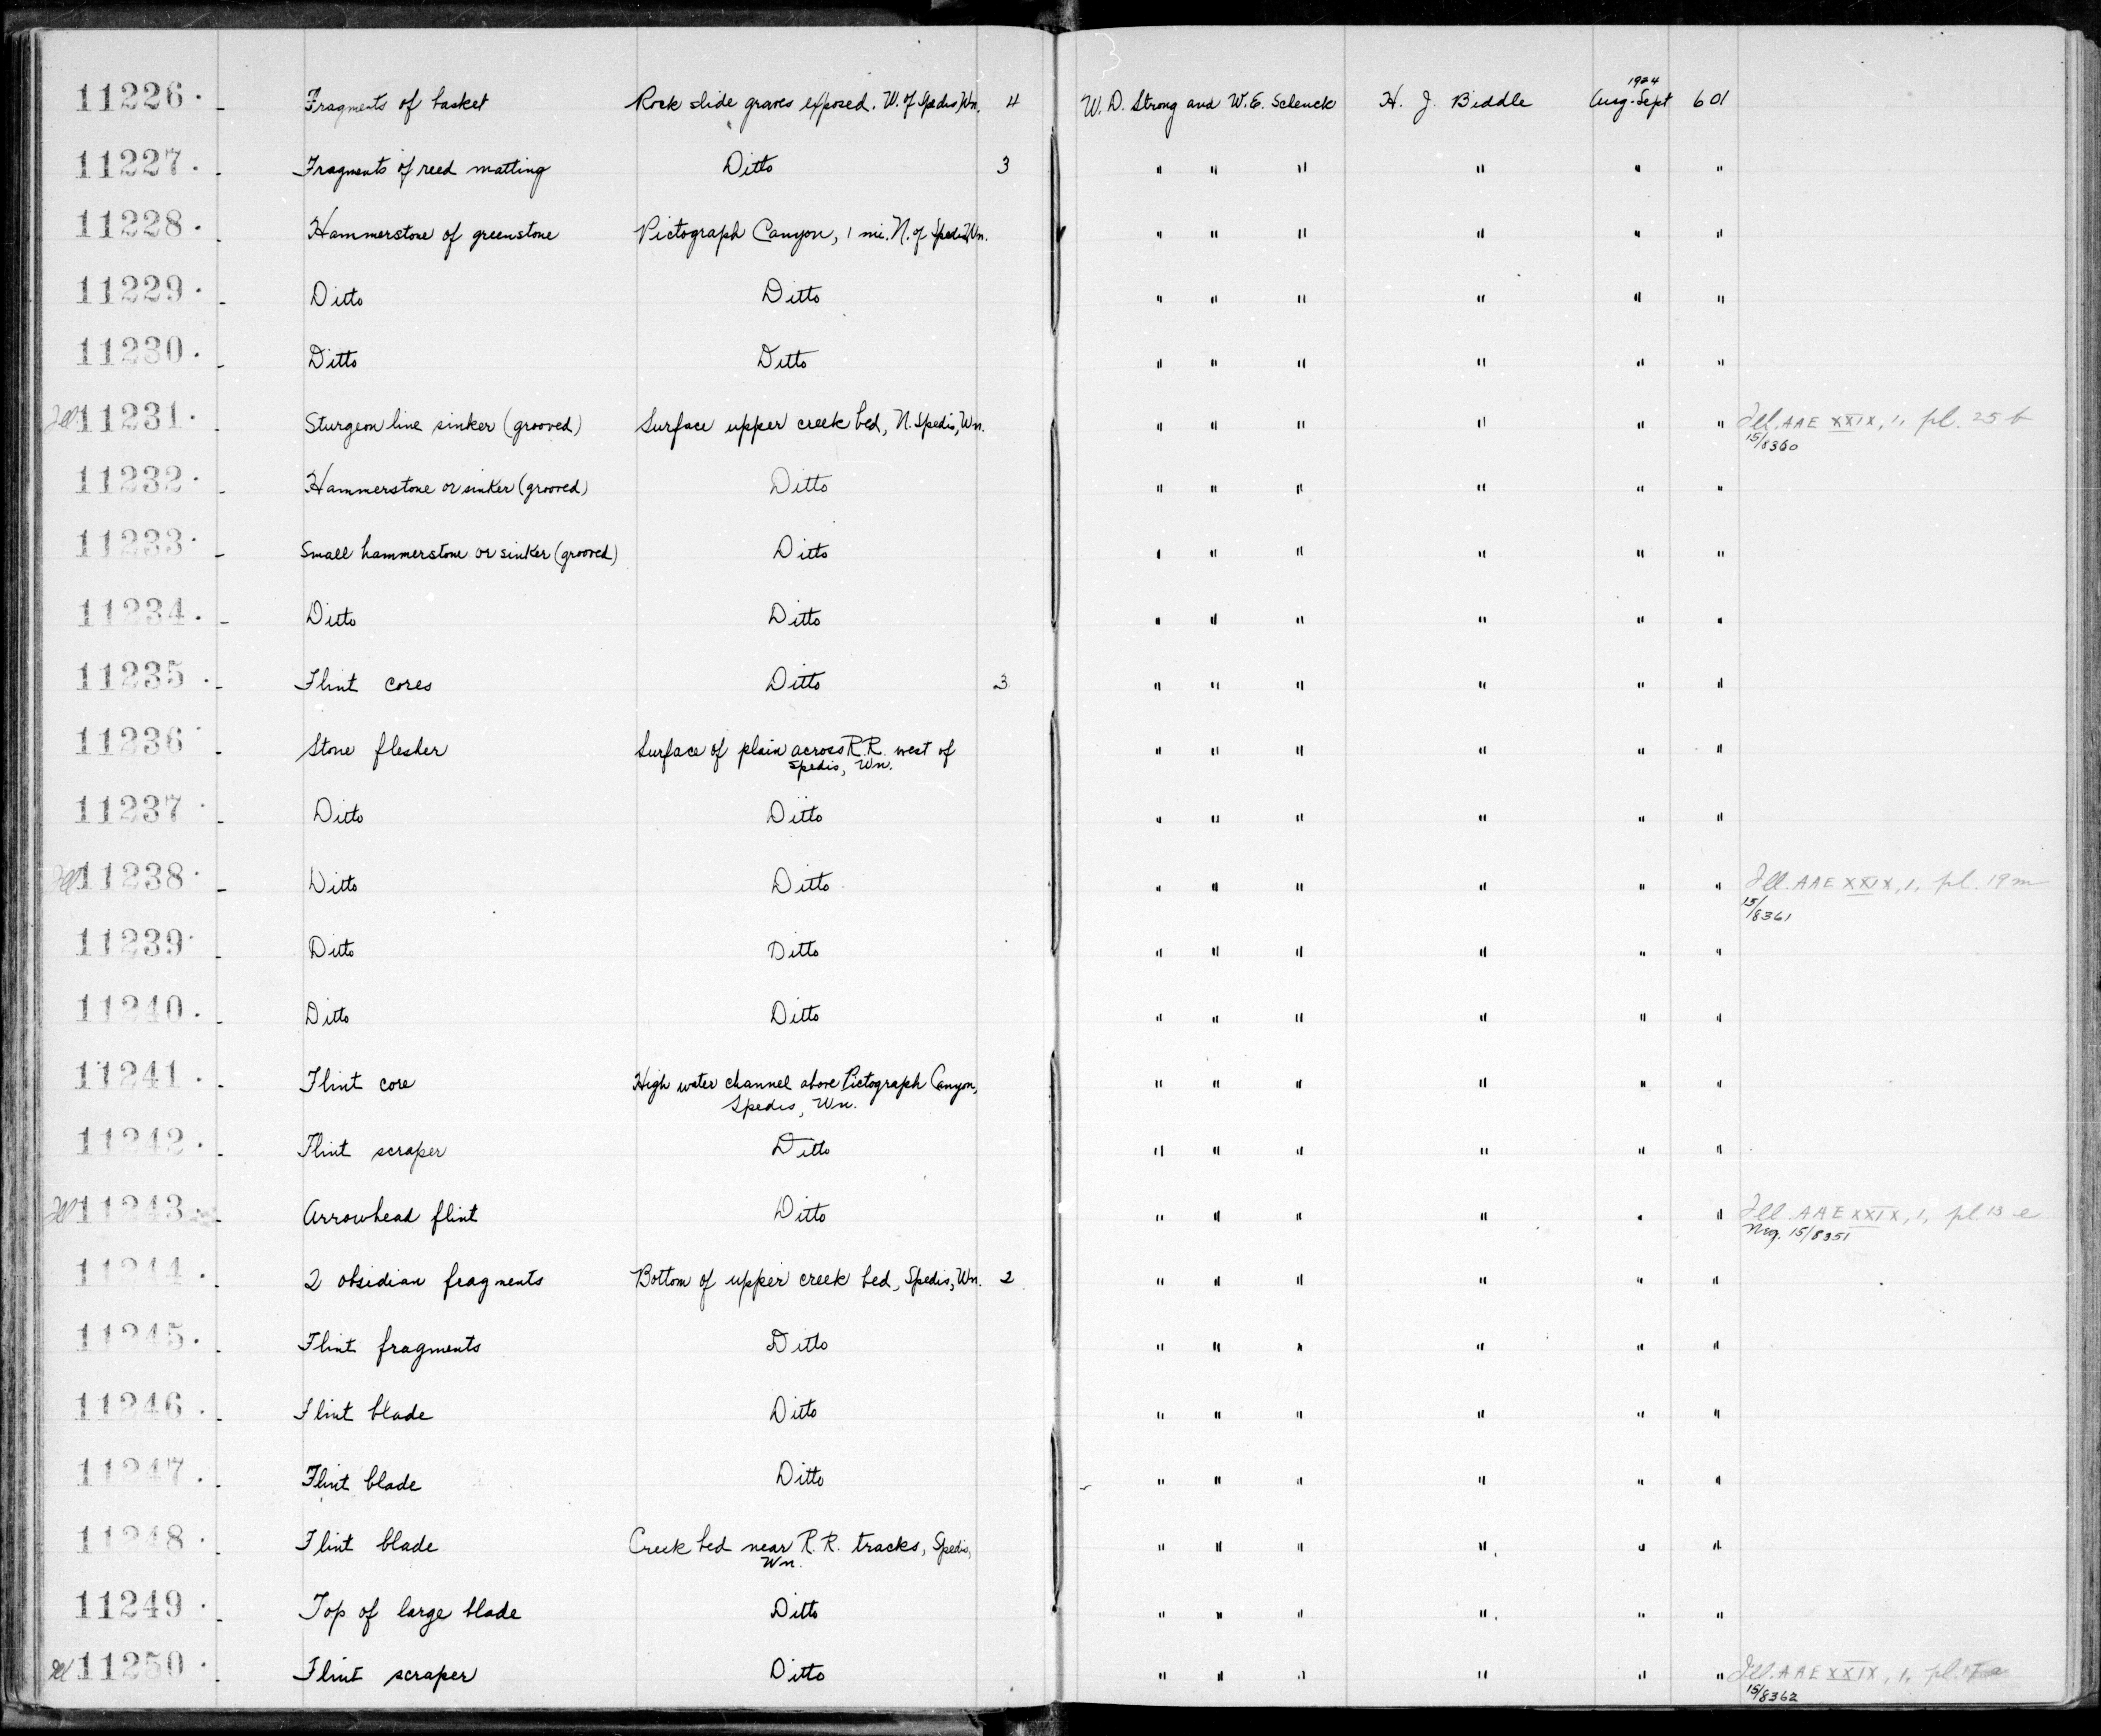 11226. - Fragments of basket Rock slide graves exposed. W. of Spedis, Wn. 4 W. D. Strong and W. E. Schenck H. J. Biddle 1924 Aug-Sept 601
11227. - Fragments of reed matting Ditto 3 " " " " " "
11228. - Hammerstone of greenstone Pictograph Canyon, 1 mi. N. of Spedis, Wn. " " " " " "
11229. - Ditto Ditto " " " " " "
11230. - Ditto Ditto " " " " " "
Ill 11231. - Sturgeon line sinker (grooved) Surface upper creek bed, N. Spedis, Wn. " " " " " " Ill. AAE XXIX, 1, pl. 25 b
15/8360
11232. - Hammerstone or sinker (grooved) Ditto " " " " " "
11233. - Small hammerstone or sinker (grooved) Ditto " " " " " "
11234. - Ditto Ditto " " " " " "
11235. - Flint cores Ditto 3 " " " " " "
11236. - Stone flesher Surface of plain across R.R. west of " " " " " "
Spedis, Wn.
11237. - Ditto Ditto " " " " " "
Ill 11238. - Ditto Ditto " " " " " " Ill. AAE XXIX, 1, pl. 19 m
15/8361
11239. - Ditto Ditto " " " " " "
11240. - Ditto Ditto " " " " " "
11241. - Flint core High water channel above Pictograph Canyon, " " " " " "
Spedis, Wn.
11242. - Flint scraper Ditto " " " " " "
Ill 11243. - Arrowhead flint Ditto " " " " " " Ill. AAE XXIX, 1, pl. 13 e
Neg. 15/8351
11244. - 2 obsidian fragments Bottom of upper creek bed, Spedis, Wn. 2 " " " " " "
11245. - Flint fragments Ditto " " " " " "
11246. - Flint blade Ditto " " " " " "
11247. - Flint blade Ditto " " " " " "
11248. - Flint blade Creek bed near R.R. tracks, Spedis, " " " " " "
Wn.
11249. - Top of large blade Ditto " " " " " "
Ill 11250. - Flint scraper Ditto " " " " " " Ill. AAE XXIX, 1, pl.
15/8362